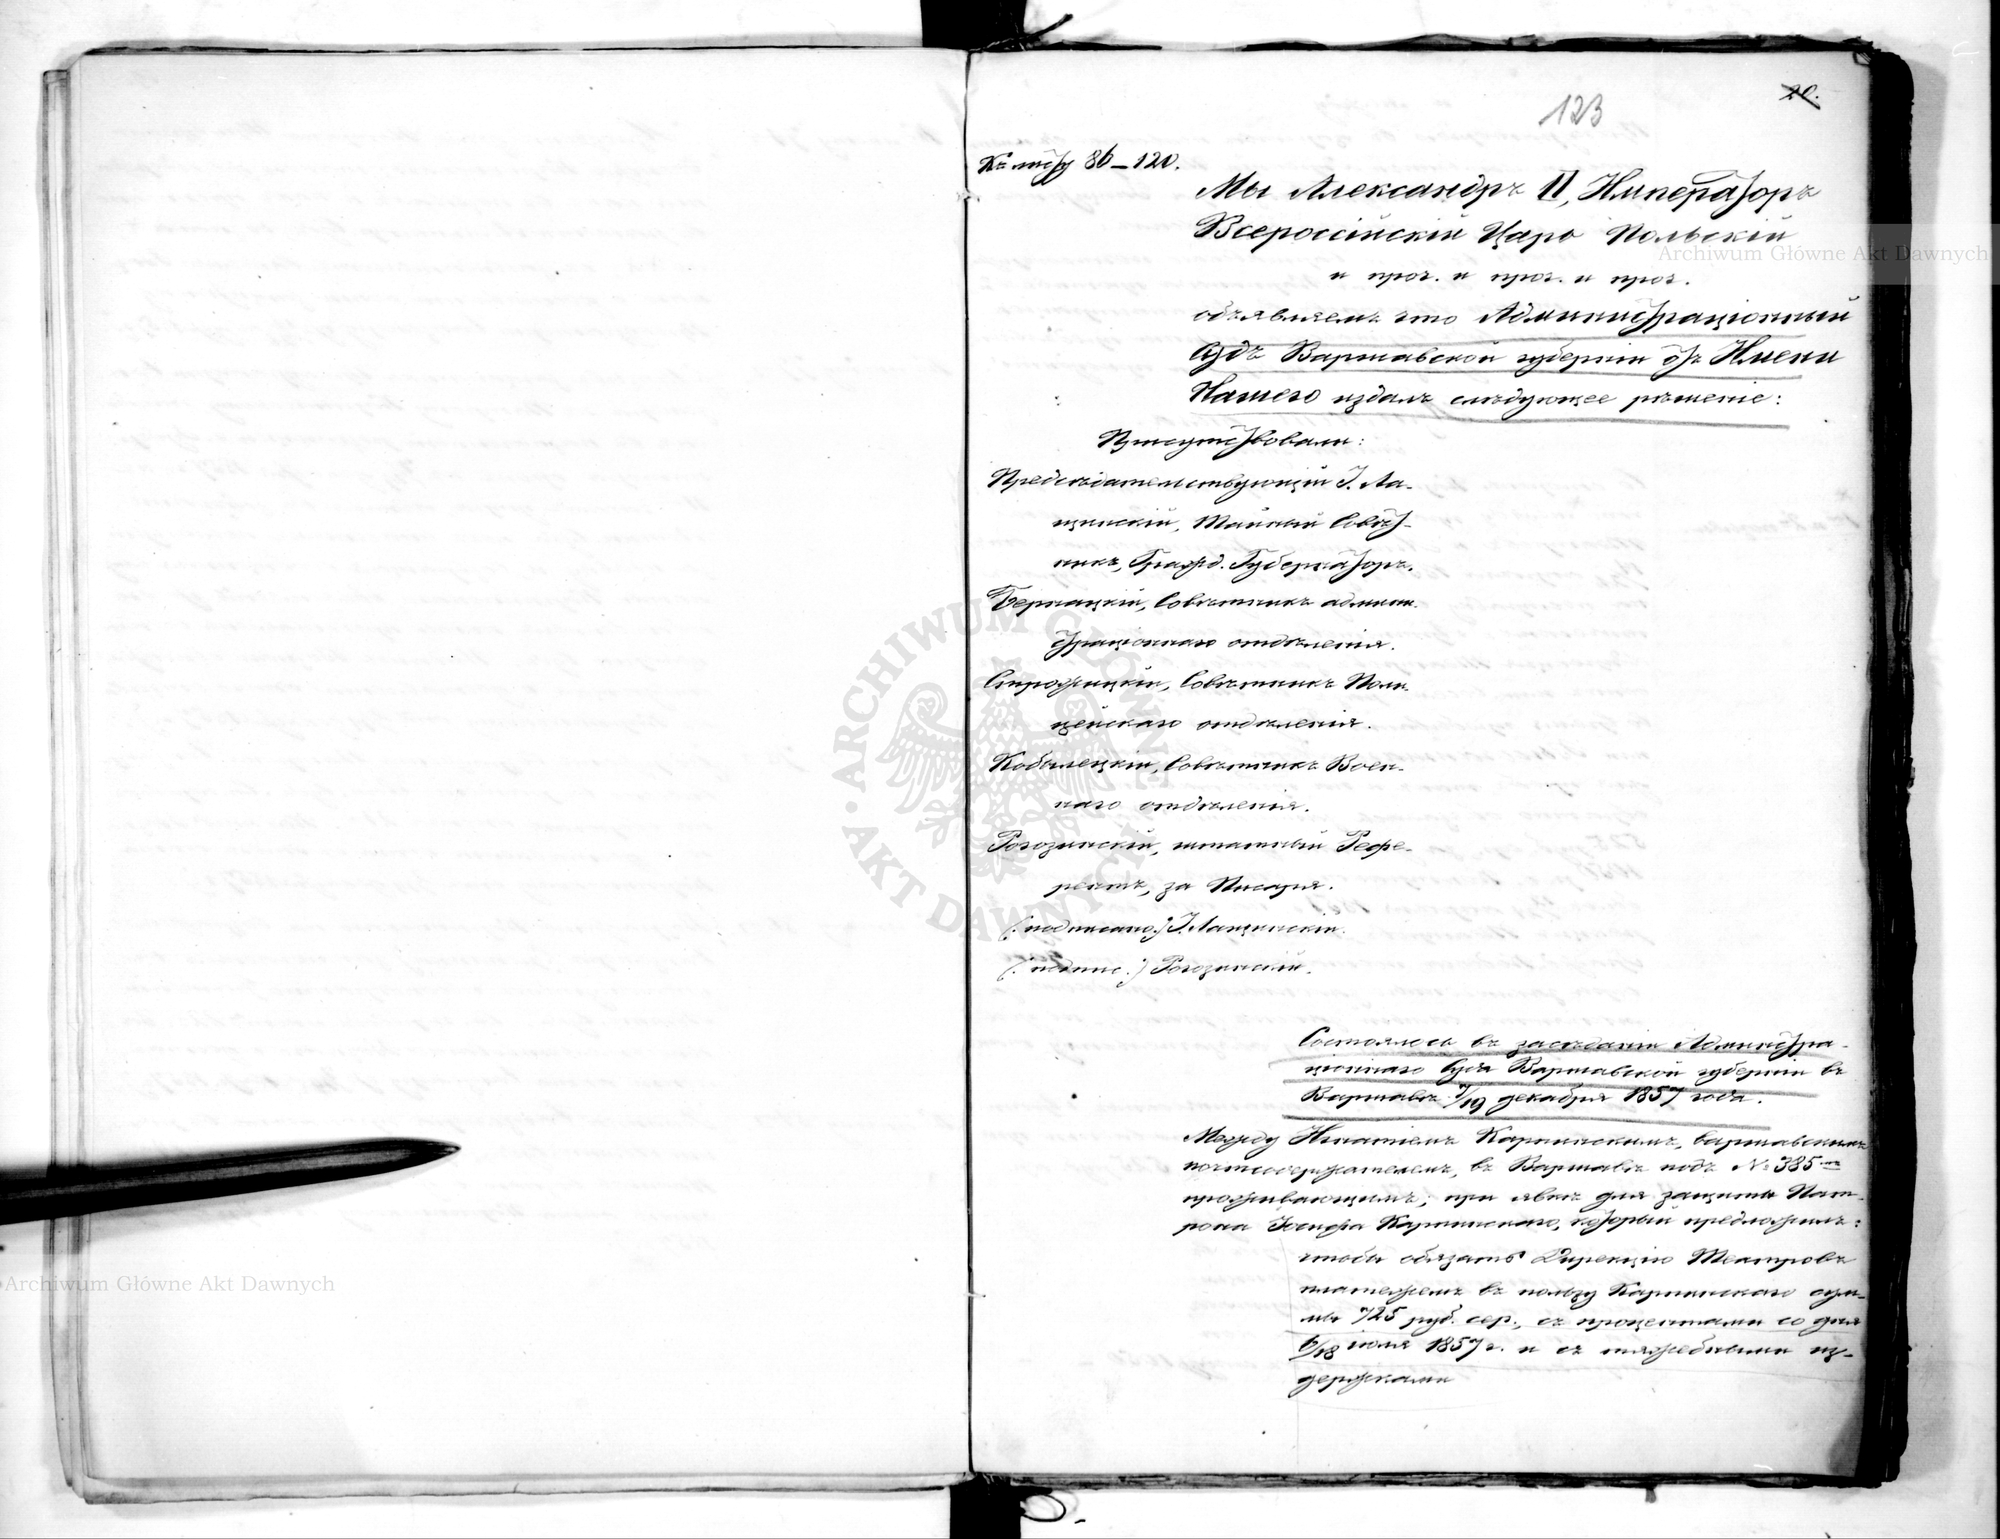 123
20.
Къ листу 86–120.
Мы Александръ II, Императоръ
Всероссійскій Царь Польскій
и проч. и проч. и проч.
объявляемъ что Административный
Судъ Варшавской губерніи отъ Имени
Нашего издалъ слѣдующее рѣшеніе:
Присутствовали:
Предсѣдательствующій I. Ла-
щинскій, Тайный Совѣт-
никъ, Гражд. Губернаторъ.
Бернацкій, Совѣтникъ админи-
страціоннаго отдѣленія.
Строжицкій, Совѣтникъ Поли-
цейскаго отдѣленія.
Кобылецкій, Совѣтникъ Воен-
наго отдѣленія.
Рогозинскій, штатный Рефе-
рентъ, за Писаря.
(: подписано:) I. Лащинскій.
(: подпис.:) Рогозинскій.
Состоялось въ засѣданіи Администра-
ціоннаго Суда Варшавской губерніи въ
Варшавѣ 7/19 декабря 1857 года.
Между Игнатіемъ Карпинскимъ, варшавскимъ
почтосодержателемъ, въ Варшавѣ подъ № 385
проживающимъ; при явкѣ для защиты Пат-
рона Іосифа Карпинскаго, который предложилъ:
чтобы обязать Дирекцію Театровъ
платежемъ въ пользу Карпинскаго сум-
мы 725 руб. сер., съ процентами со дня
6/18 іюля 1857 г. и съ тяжебными из-
держками
Archiwum Główne Akt Dawnych
ARCHIWUM GŁÓWNE AKT DAWNYCH
Archiwum Główne Akt Dawnych